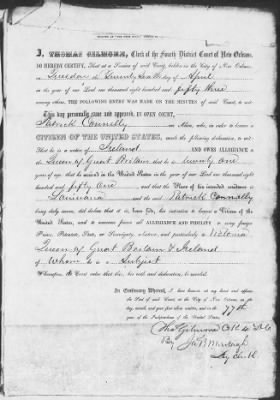 I, THOMAS GILMORE, Clerk of the Fourth District Court of New Orleans,
DO HEREBY CERTIFY, That at a Session of said Court, holden in the City of New Orleans
on Tuesday the Twenty Sixth day of April
in the year of our Lord one thousand eight hundred and fifty three
among others, THE FOLLOWING ENTRY WAS MADE ON THE MINUTES of said Court, to wit:
This day personally came and appeared, IN OPEN COURT,
Patrick Connolly an Alien, who, in order to become a
CITIZEN OF THE UNITED STATES, made the following declaration to wit:
That he is a native of Ireland AND OWES ALLEGIANCE to
Queen of Great Britain that he is twenty one
years of age, that he arrived in the United States in the year of our Lord one thousand eight
hundred and fifty one and that the Place of his intended residence is
Louisiana and the said Patrick Connolly
being duly sworn, did declare that it is, bona fide, his intention to become a Citizen of the
United States, and to renounce forever all ALLEGIANCE AND FIDELITY to every foreign
Prince, Potentate, State, or Sovereignty, whatever, and particularly to Victoria
Queen of Great Britain & Ireland
of Whom he is a Subject
Whereupon, the Court order that his said declaration be recorded.
In Testimony Whereof, I have hereunto set my hand and affixed
the Seal of said Court, at the City of New Orleans, on the
day, month and year first above written, and in the 77th
year of the Independence of the United States.
Thos Gilmore Clk
By
Dy Clerk